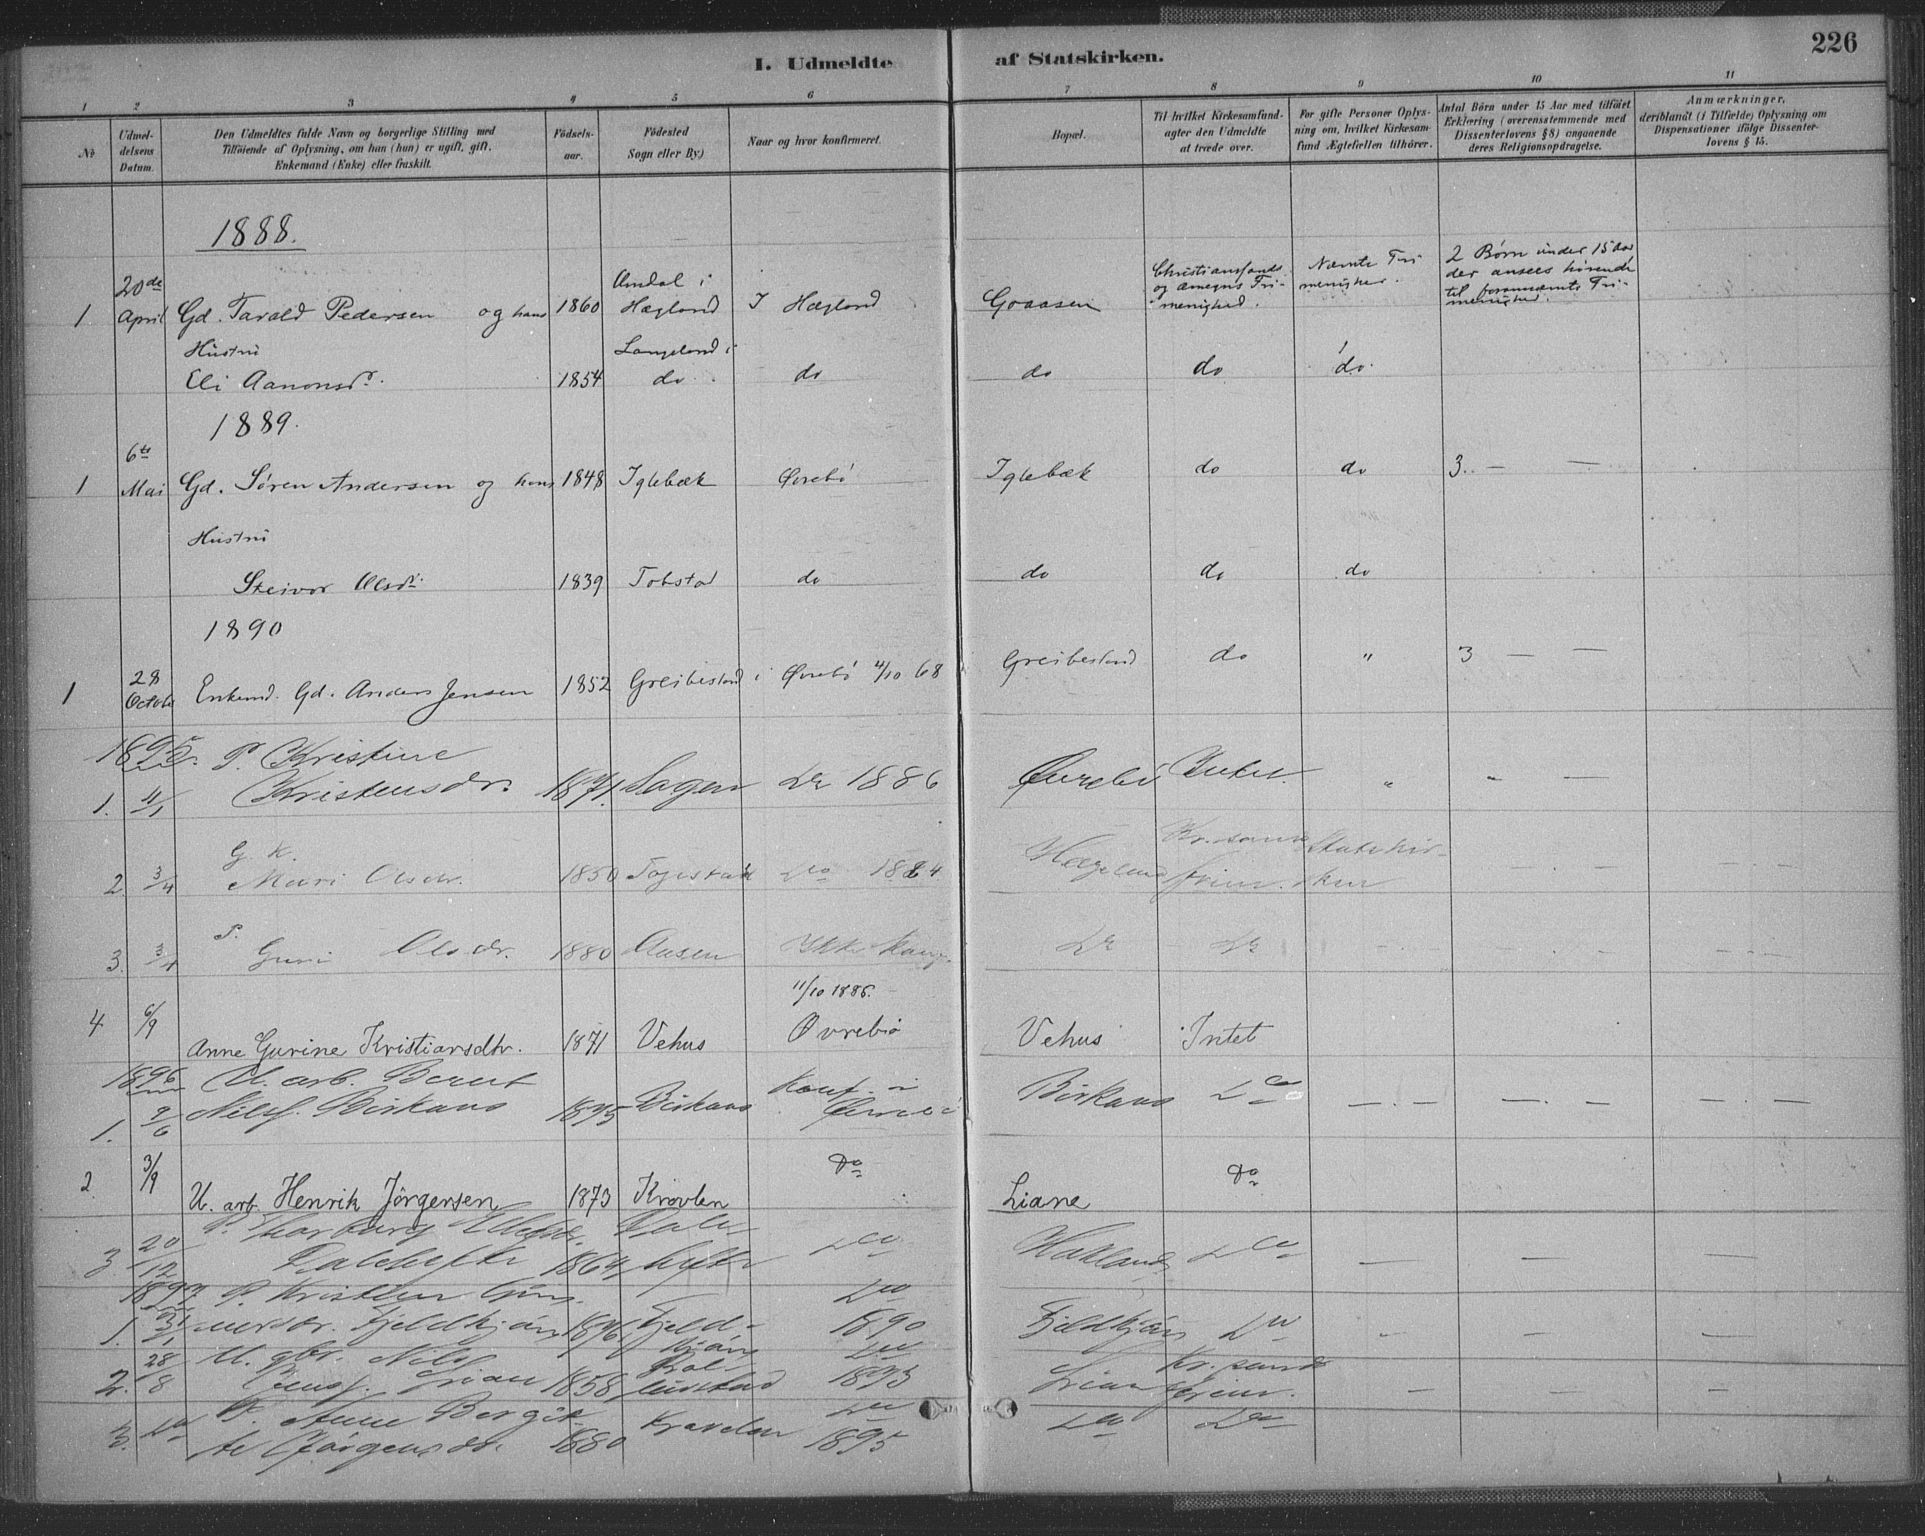 I. Udmeldte af Statskirken.
226
1 2 3 4 5 6 7 8 9 10 11
No
Udmel-
delsens
Datum.
Den Udmeldtes fulde Navn og borgerlige Stilling med
Tilföiende af Oplysning, om han (hun) er ugift, gift,
Enkemand (Enke) eller fraskilt.
Födsels-
aar.
Födested
Sogn eller By)
Naar og hvor konfirmeret.
Bopæl.
Til hvilket Kirkesamfund-
agter den Udmeldte
at træde over.
For gifte Personer Oplys-
ning om, hvilket Kirkesam-
fund Ægtefællen tilhörer.
Antal Börn under 15 Aar med tilföiet
Erklæring (overensstemmende med
Dissenterlovens § 8) angaaende
deres Religionsopdragelse.
Anmærkninger,
deriblandt (i Tilfælde) Oplysning om
Dispensationer ifölge Dissenter-
lovens § 15.
1888.
1 20de April Gd. Tarald Pedersen og hans 1860 Omdal i Hægland I Hægland Goaasen Christiansands og omegns Fri-menighed. Nævnte Fri-menighed. 2 Børn under 15 Aar der ansees hørende til fornævnte Fri-menighed.
Hustru
Eli Aanonsdr. 1854 Langeland i do do do do do
1889.
1 6te Mai Gd. Sören Andersen og hans 1848 Iglebæk Øvrebö Iglebæk do do 3 — —
Hustru
Steivor Olsdr. 1839 Tobstad do do do do
1890
1 28 Octobr Enkemd. Gd. Anders Jensen 1852 Greibestad i Øvrebö 4/10 68 Greibestad do " 3 — —
1895. P. Kristine
1. 11/1 Kristensdr. 1871. Sagen Do 1886 Øvrebö Intet. " " —
G. K.
2 3/4 Mari Olsdr. 1850 Togestad Do 1864 Hægeland Kr.sands frim. Statskir-ken — — — —
P.
3. 3/4 Guri Olsdr. 1880 Aasen Ikke konf. Do Do — — — —
11/10 1886.
4 6/9 Anne Gurine Kristiansdtr. 1871 Vehus Øvrebö Vehus Intet
1896 U. arb. Berent Konf. i
1. 9/6 Nilsf. Birkenes 1875 Øvrebö Do — — — —
2. 3/9 U. arb. Henrik Jörgensen 1873 Kravlen Do Liane Do
3. 20/12 P. Tharborg 1864 Do Do — — —
1897 P. Do
1. Fjeldkjær 1876 Fjeld-kjær 1890 Fjeldkjær Do — — —
2. 28/8 U. gbr. Nils Jensf. Lian 1858 Do 1873 Lian Kr.sands frim. — — —
3. Do P. Anne Bergit-te Jörgensdr. 1880 Kravelen Do 1895 Do Do